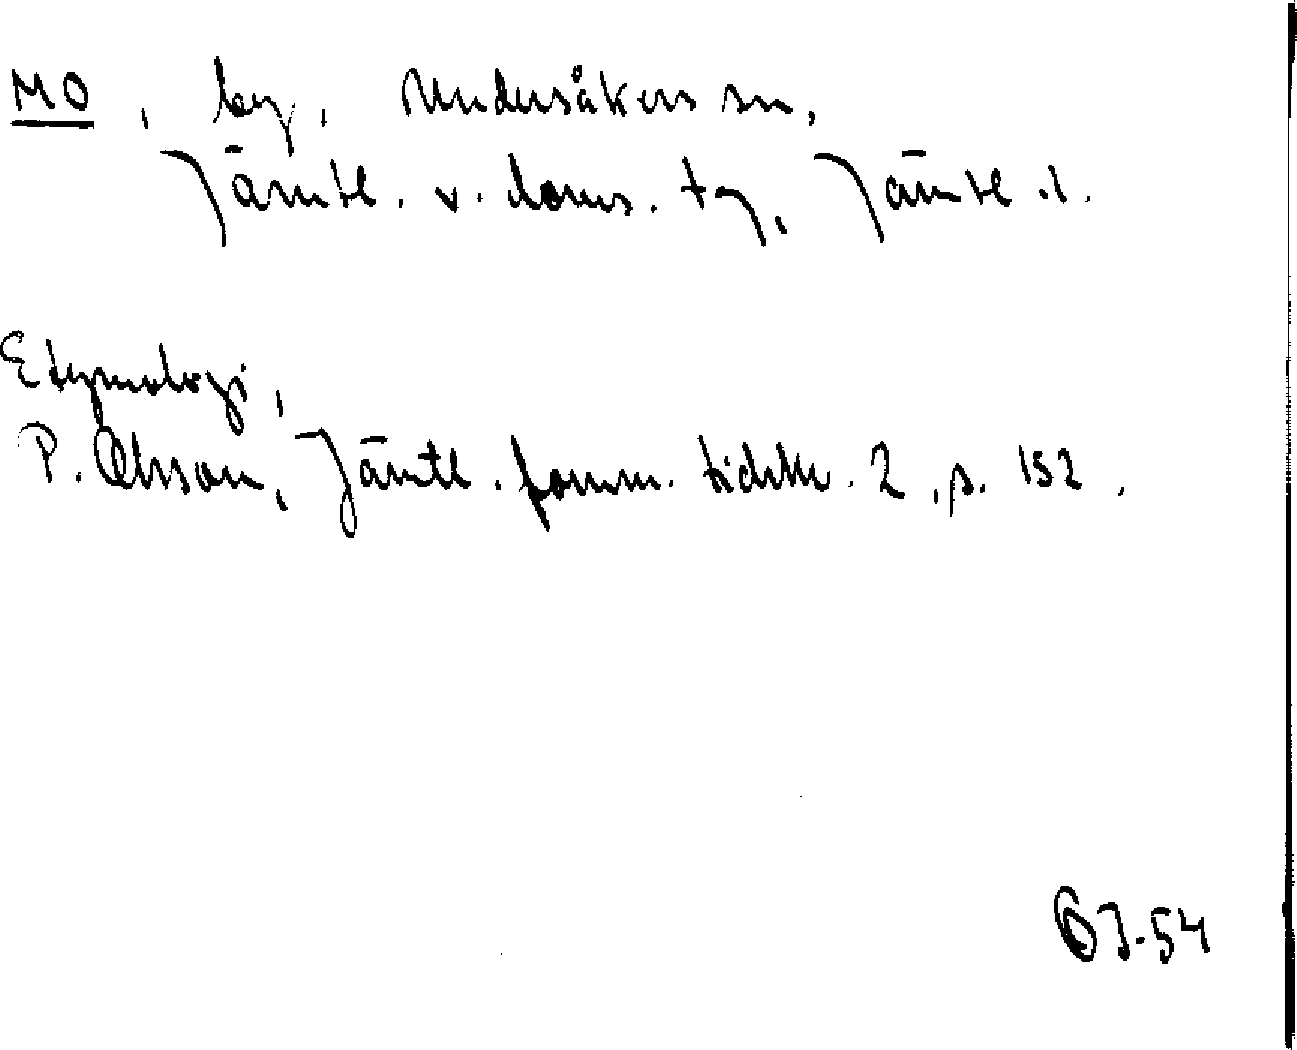 MO, by, Undersåkers sn,
Jämtl. v. doms. tg, Jämtl. l.
Etymologi,
P. Olsson, Jämtl. fornm. tidskr. 2, s. 152,
J-54